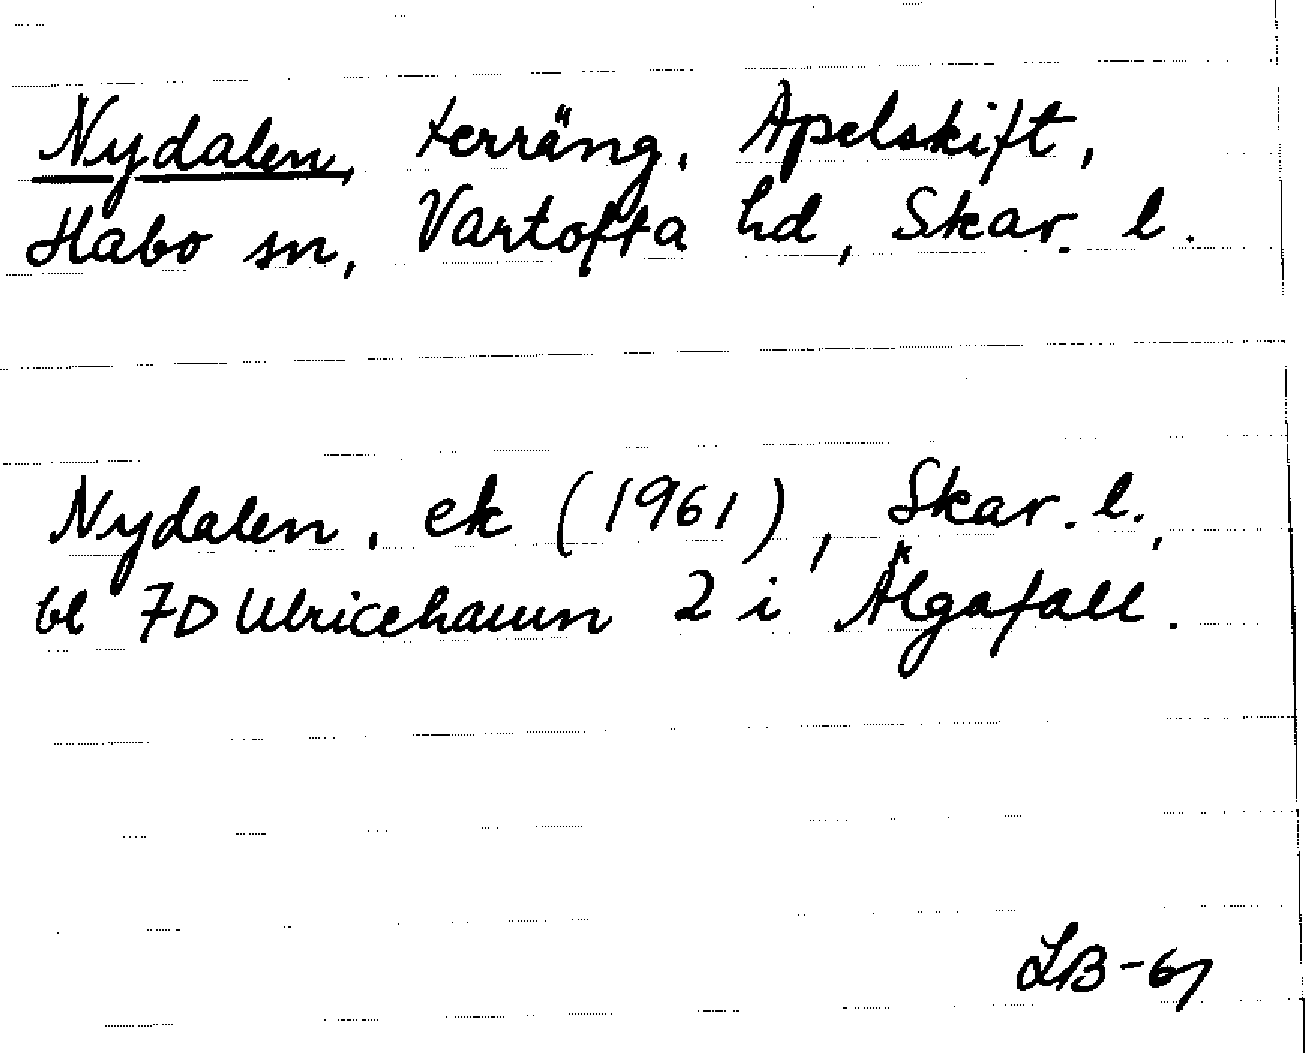 Nydalen, terräng. Apelskift,
Habo sn, Vartofta hd, Skar. l.
Nydalen. ek (1961), Skar. l.,
bl 7D Ulricehamn 2 i Älgafall.
LB-67